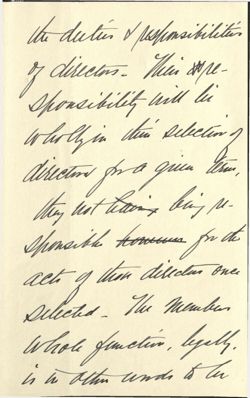 the duties & responsibilities
of directors - Their re-
sponsibility will lie
wholly in their selection of
directors for a given term,
they not being being re-
sponsible however for the
acts of those directors once
selected - The members
whole function, legally,
is in other words to be